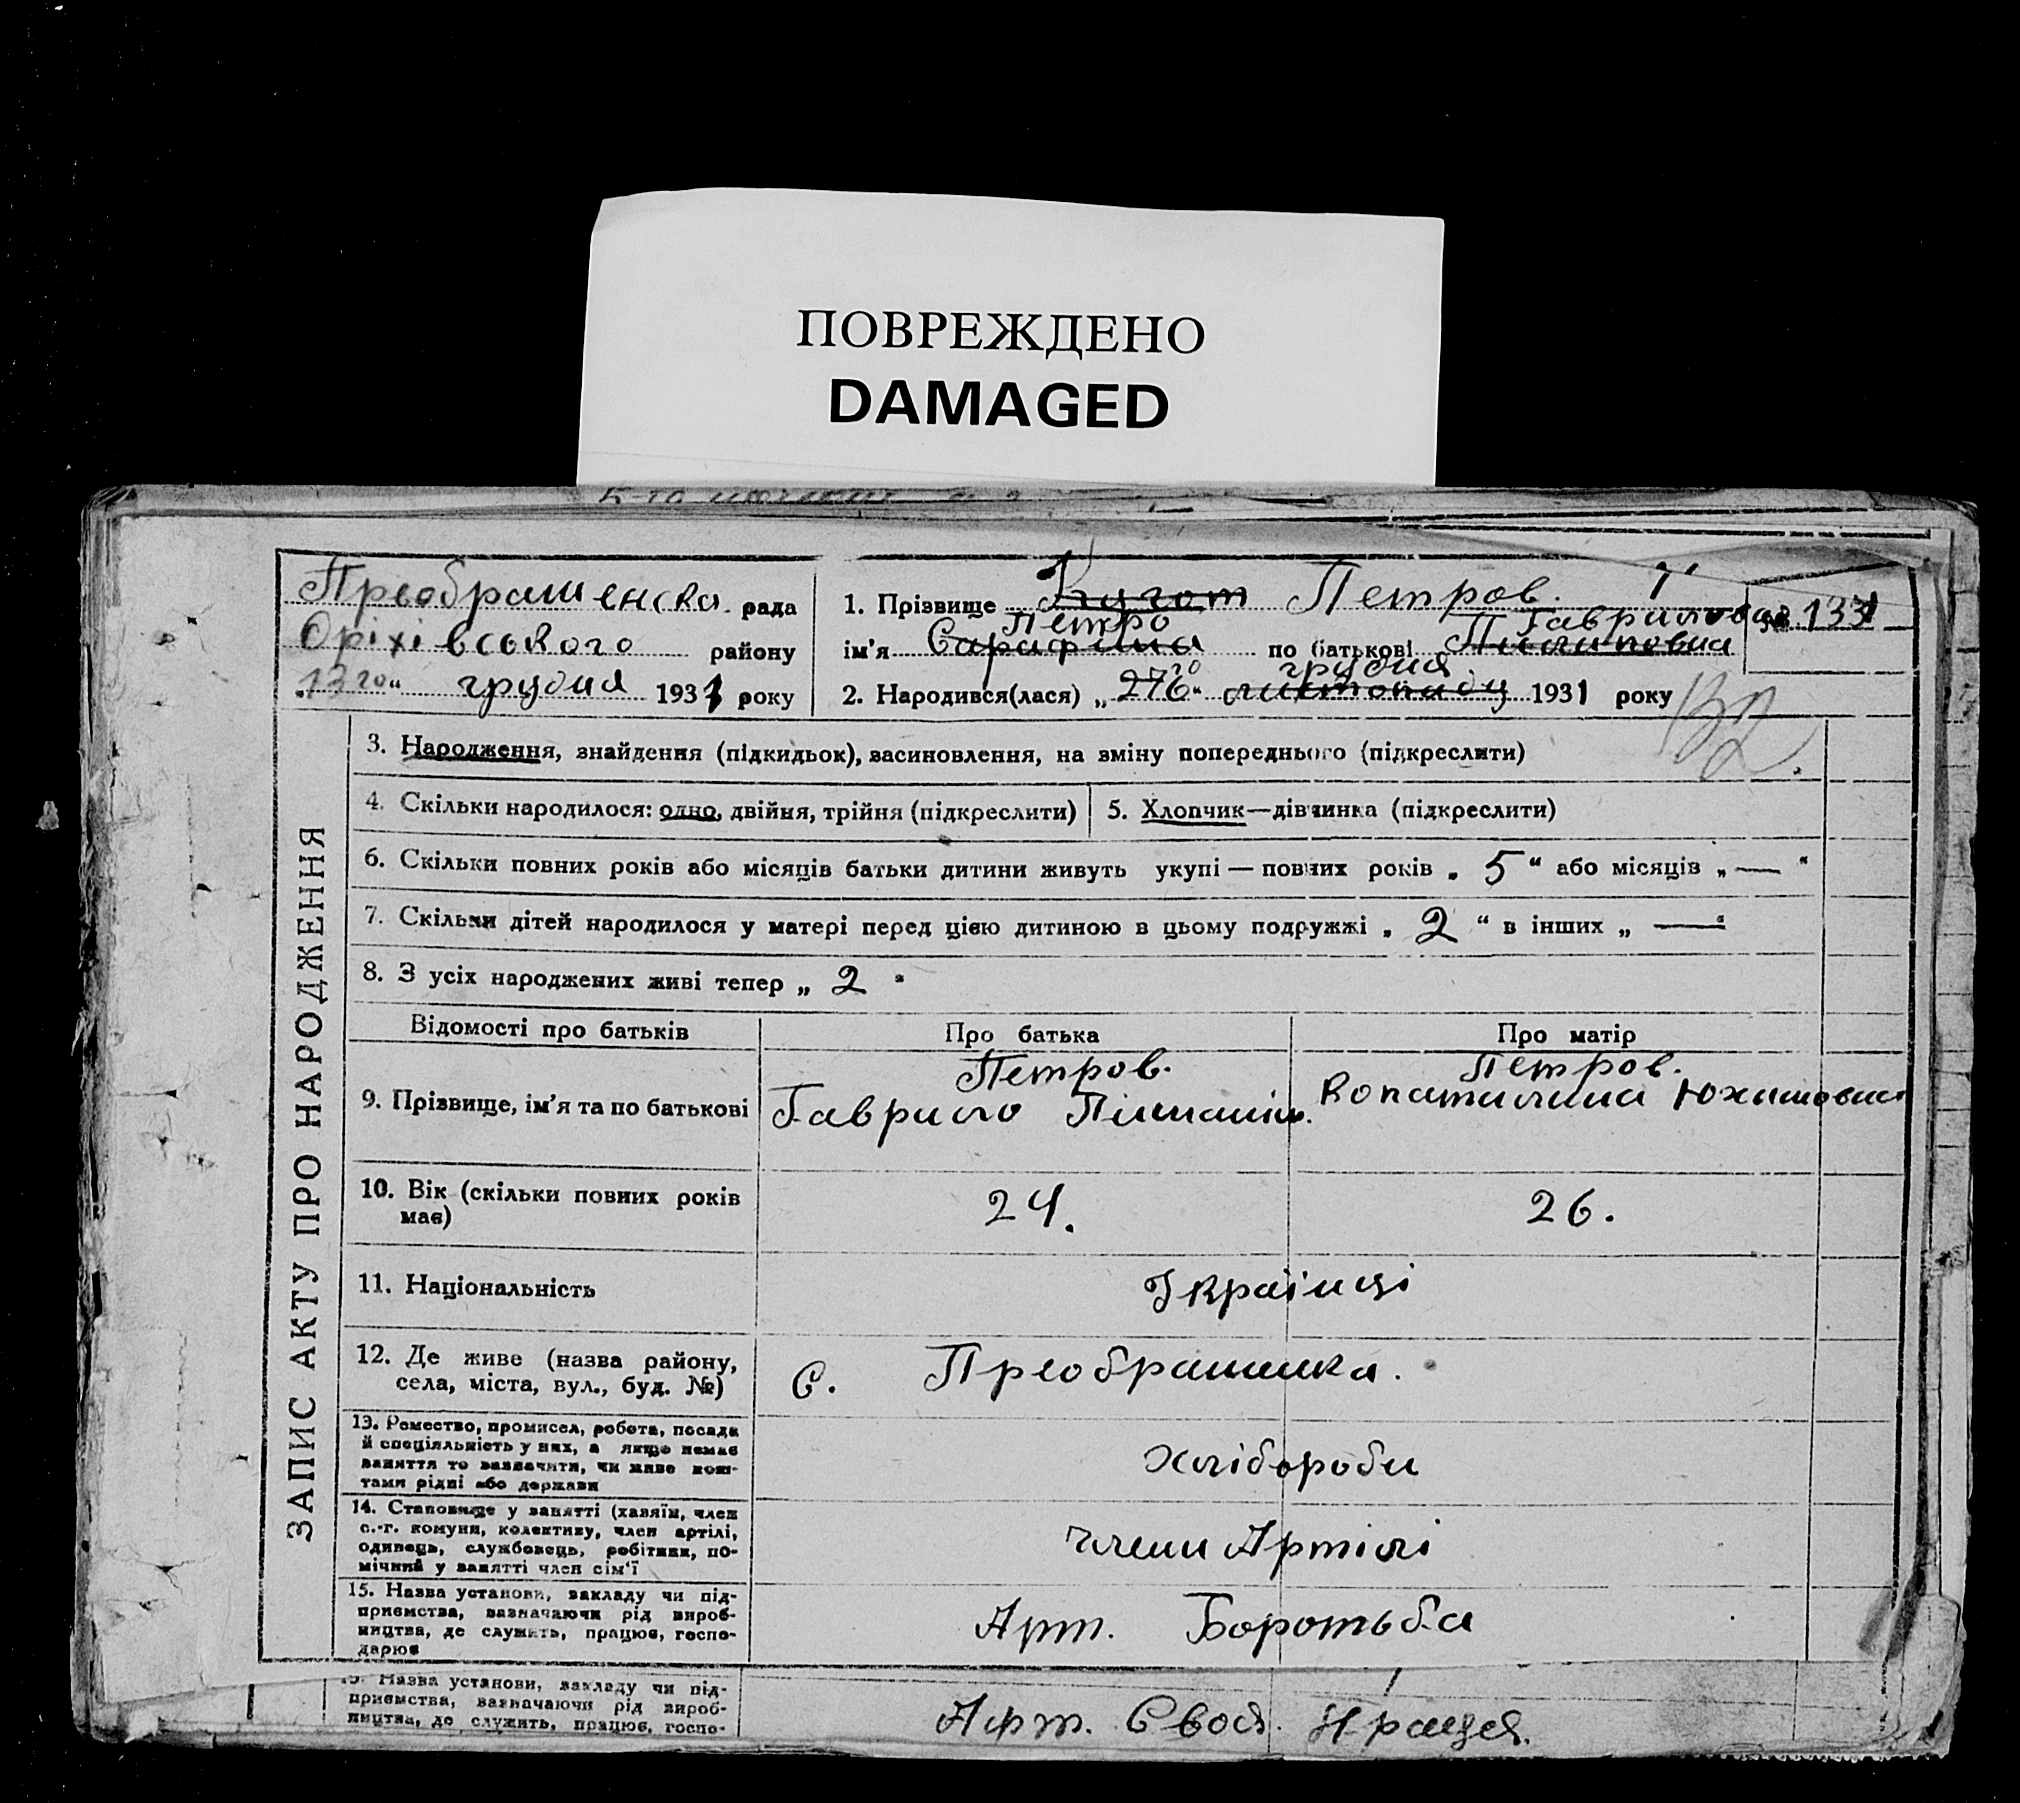 ПОВРЕЖДЕНО
DAMAGED
Преображенска рада
Оріхівського району
„13го“ грудня 1931 року
1. Прізвище Кугот Петров.
Петро Гаврилович № 133
ім'я Сарафина по батькові Пилиповна
го грудня
2. Народився(лася) „276“ листопаду 1931 року
132
3. Народження, знайдення (підкидьок), васиновлення, на зміну попереднього (підкреслити)
4. Скільки народилося: одно, двійня, трійня (підкреслити) 5. Хлопчик—дівчинка (підкреслити)
6. Скільки повних років або місяців батьки дитини живуть укупі — повних років „ 5 “ або місяців „ — “
7. Скільки дітей народилося у матері перед цією дитиною в цьому подружжі „ 2 “ в інших „ — “
8. З усіх народжених живі тепер „ 2 “
Відомості про батьків Про батька Про матір
Петров. Петров.
9. Прізвище, ім'я та по батькові Гаврило Юхимовна
10. Вік (скільки повних років має) 24. 26.
11. Національність Українці
12. Де живе (назва району,
села, міста, вул., буд. №) с. Преображенка.
13. Ремество, промисел, робота, посада
й спеціяльність у них, а якщо немає
заняття то зазначити, чи живе кош-
тами рідні або держави
Хлібороби
14. Становище у занятті (хазяїн, член
с.-г. комуни, колективу, член артілі,
одинець, службовець, робітник, по-
мічний у занятті член сім'ї
члени Артілі
15. Назва установи, закладу чи під-
приємства, зазначаючи рід вироб-
ництва, де служить, працює, госпо-
дарює
Арт. Боротьба
ЗАПИС АКТУ ПРО НАРОДЖЕННЯ
15. Назва установи, закладу чи під-
приємства, зазначаючи рід вироб-
ництва, де служить, працює, госпо-
Арт. Своя Праця.